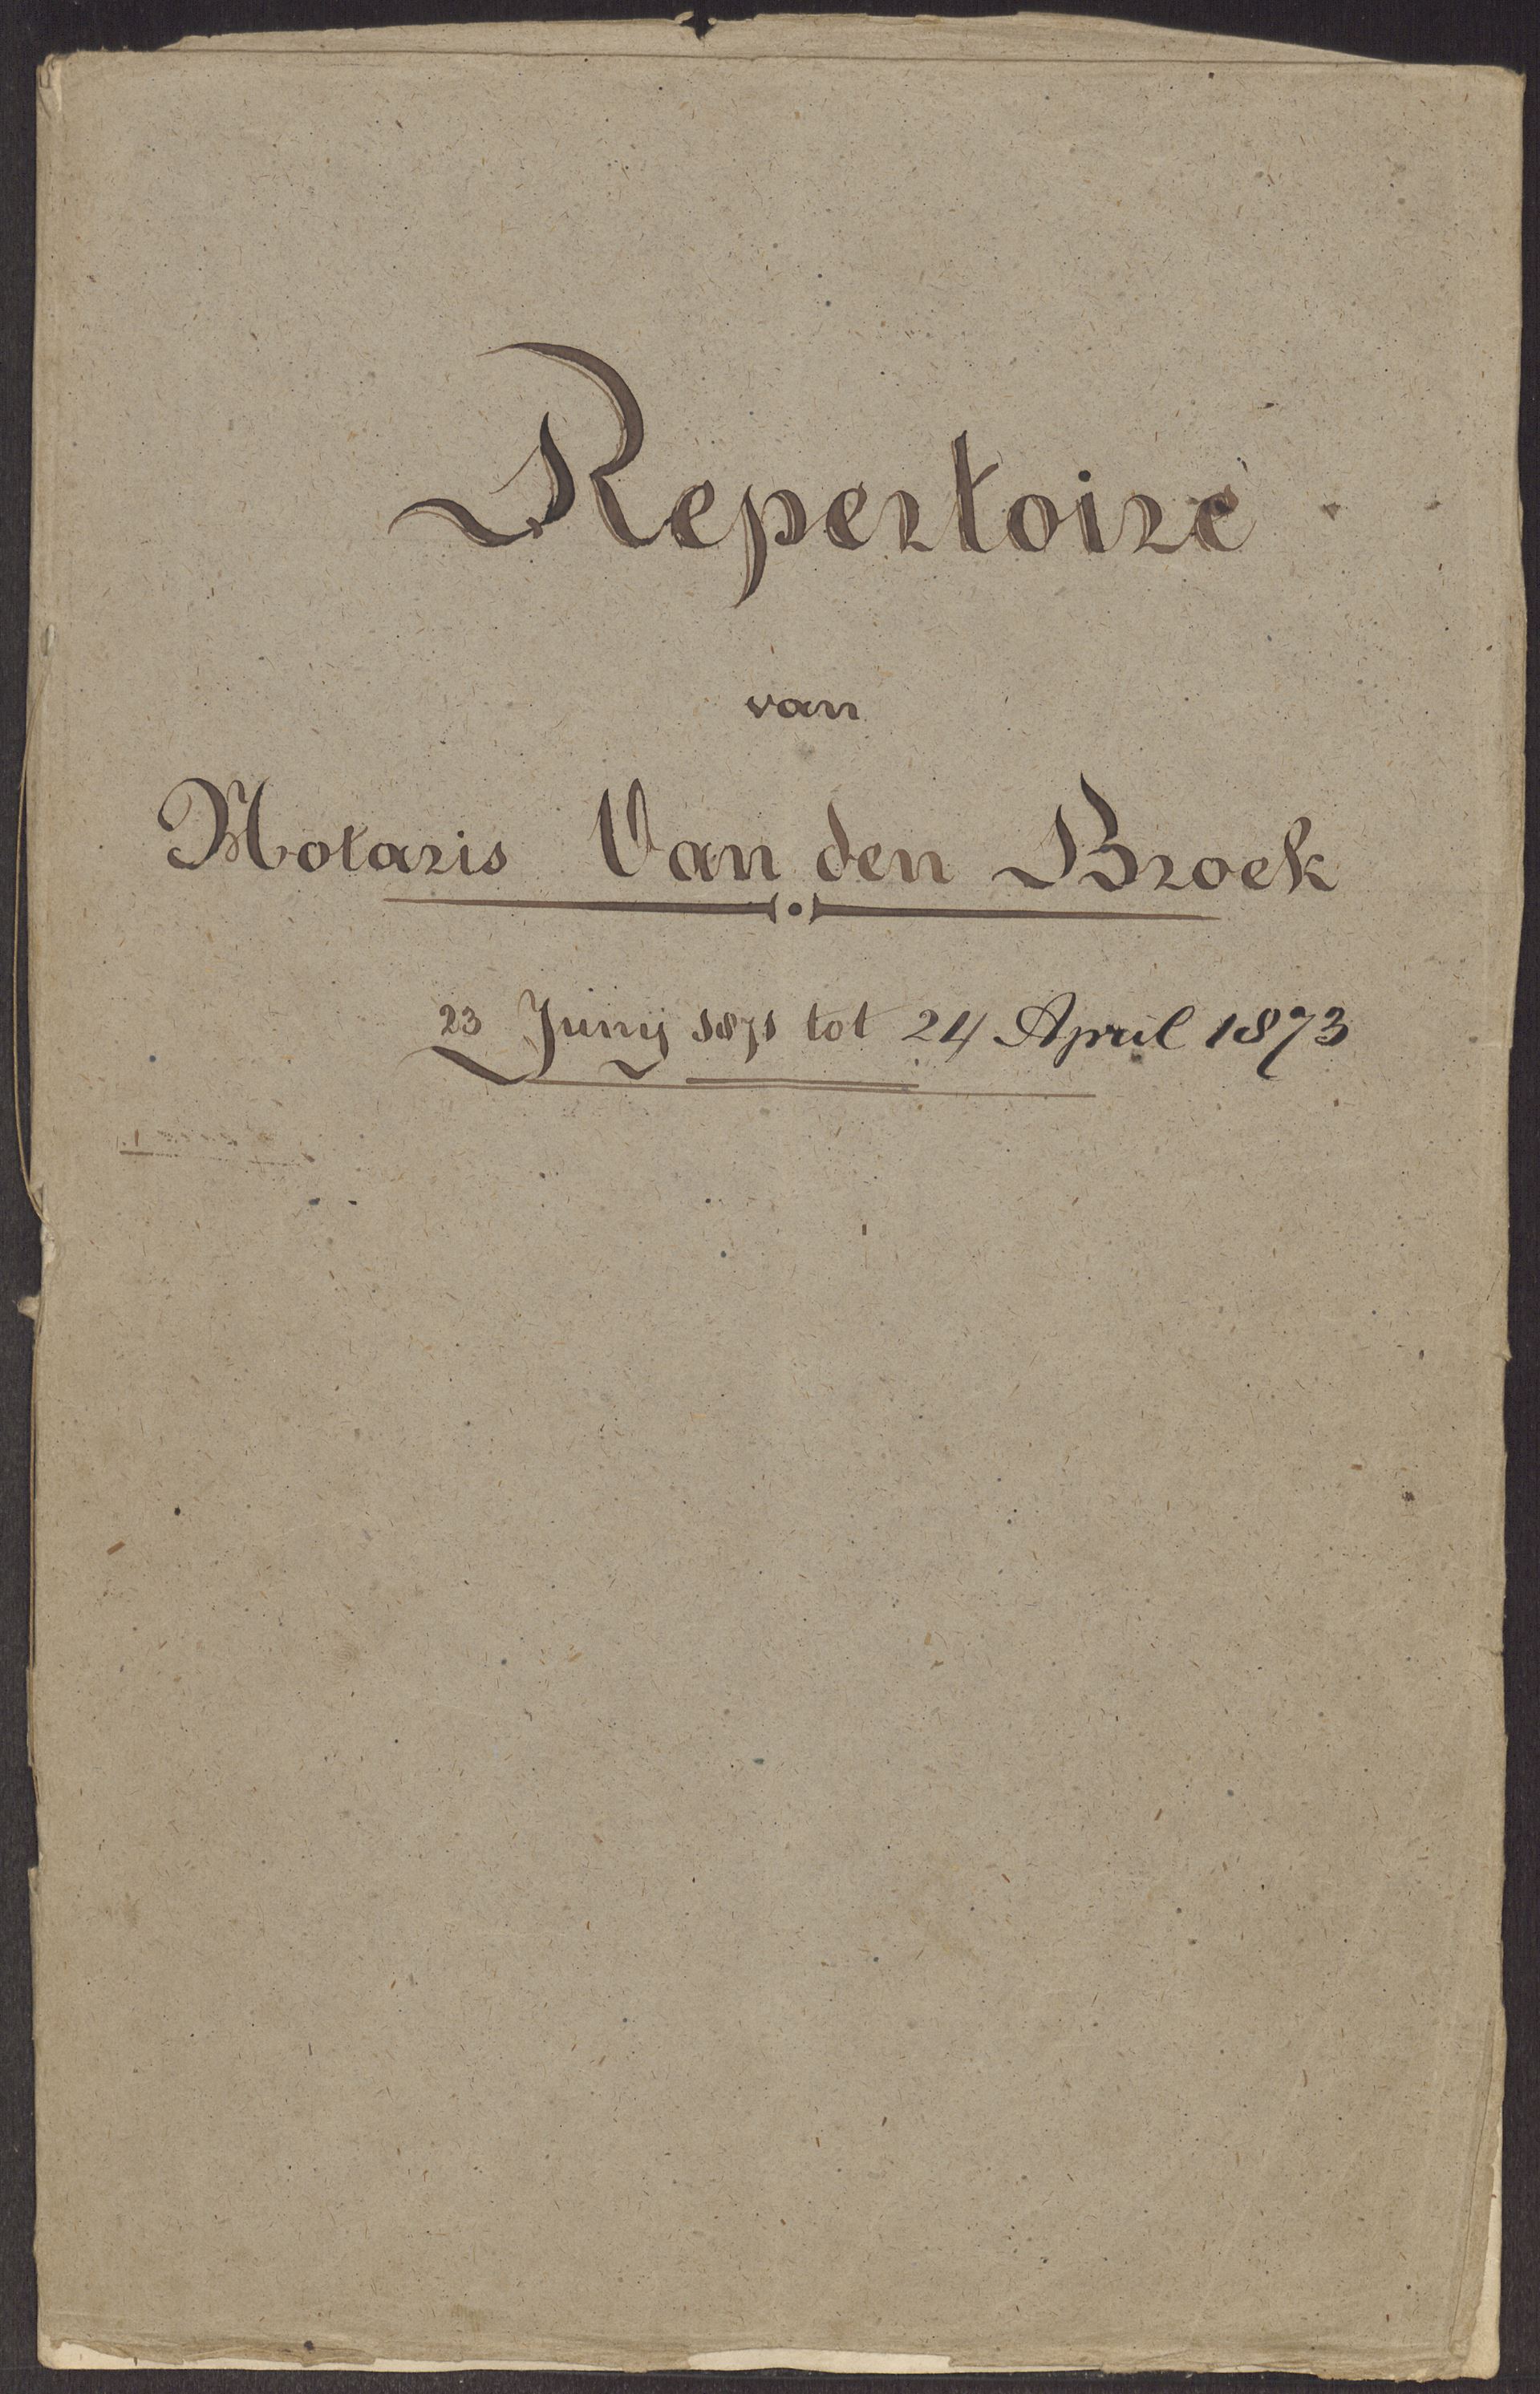 Repertoire
van
Notaris Van den Broek
23 Junij 1871 tot 24 April 1873